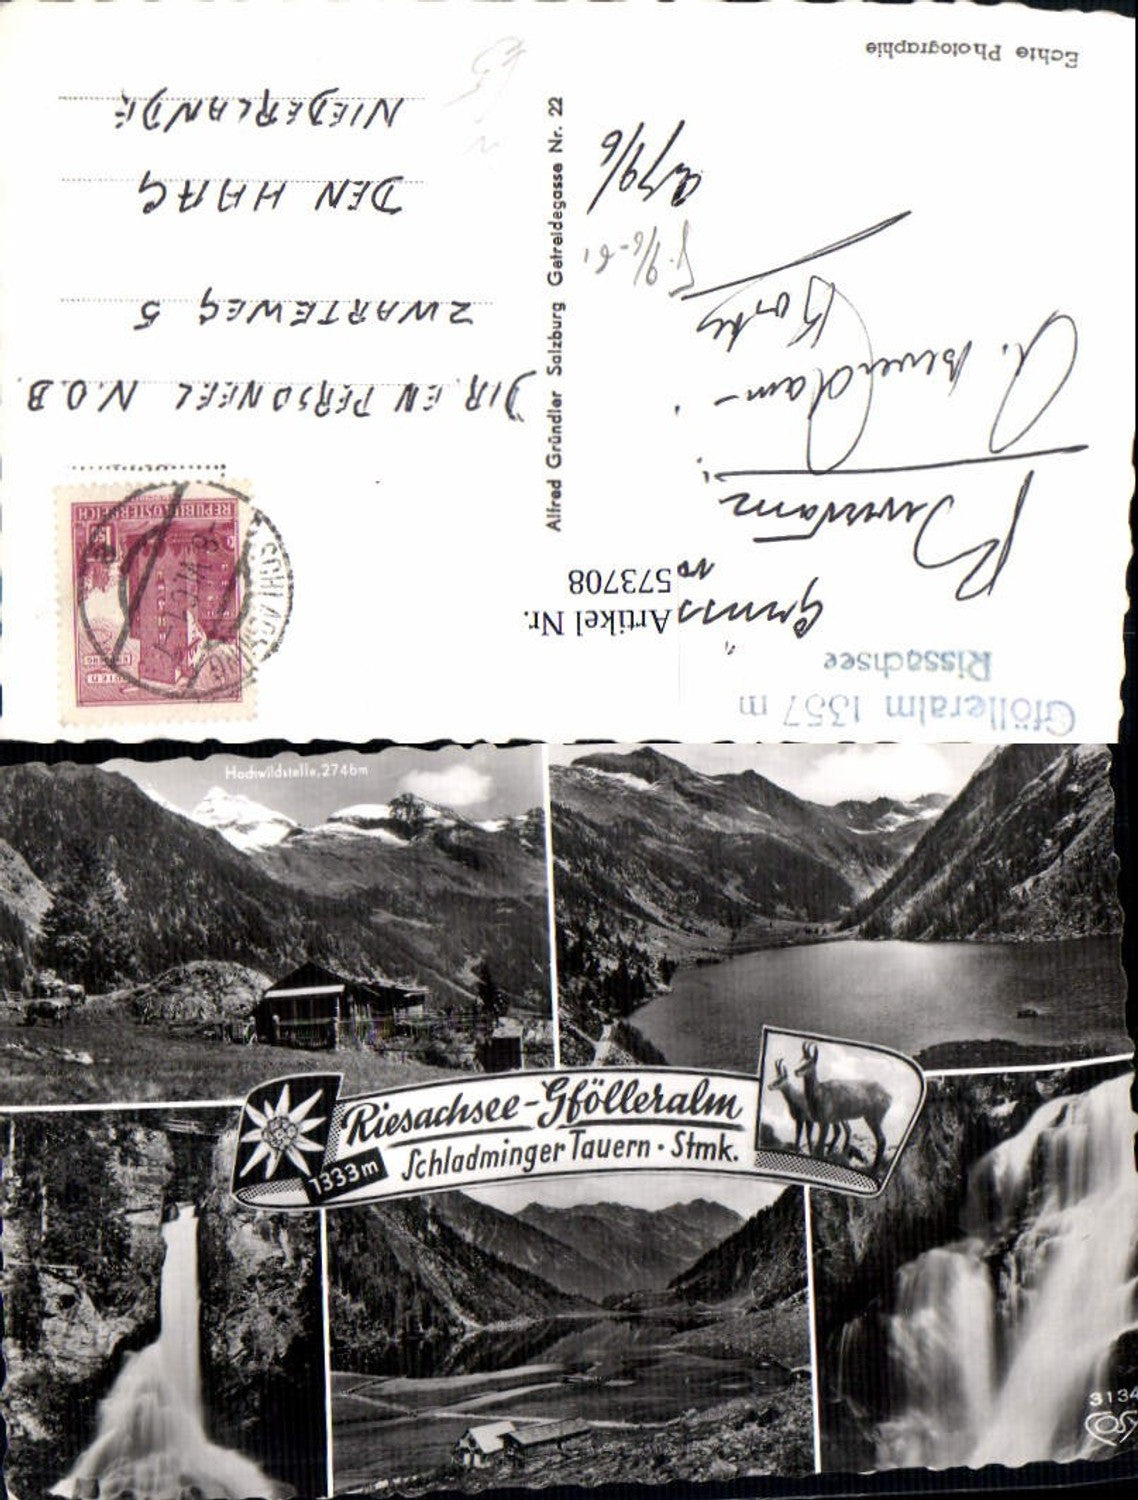 Gfölleralm 1357 m
Rissachsee
Artikel Nr.
573708
Gruss
Alfred Gründler Salzburg Getreidegasse Nr. 22
Echte Photographie
REPUBLIK ÖSTERREICH
SCHLADMING
DIR. EN PERSONEEL N.O.B.
ZWARTEWEG 5
DEN HAAG
NIEDERLANDE
Hochwildstelle, 2746m
Riesachsee-Gfölleralm
1333m
Schladminger Tauern · Stmk.
3134
COSY